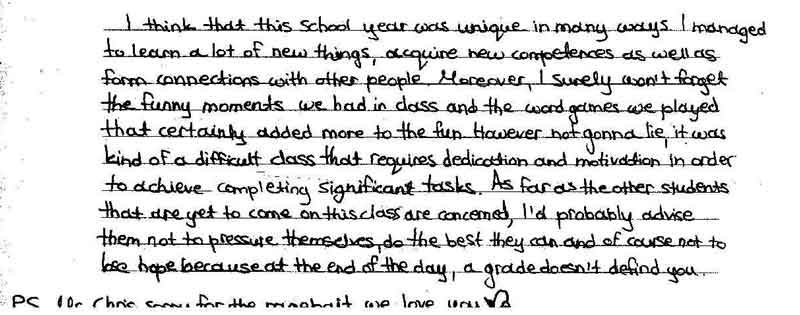 I think that this school year was unique in many ways I managed
to learn a lot of new things, acquire new competences as well as
form connections with other people. Moreover, I surely won't forget
the funny moments we had in class and the word games we played
that certainly added more to the fun. However not gonna lie, it was
kind of a difficult class that requires dedication and motivation in order
to achieve completing significant tasks. As far as the other students
that are yet to come on this class are concerned, I'd probably advise
them not to pressure themselves, do the best they can and of course not to
lose hope because at the end of the day, a grade doesn't defind you.
PS Mr Chris sorry for the we love you